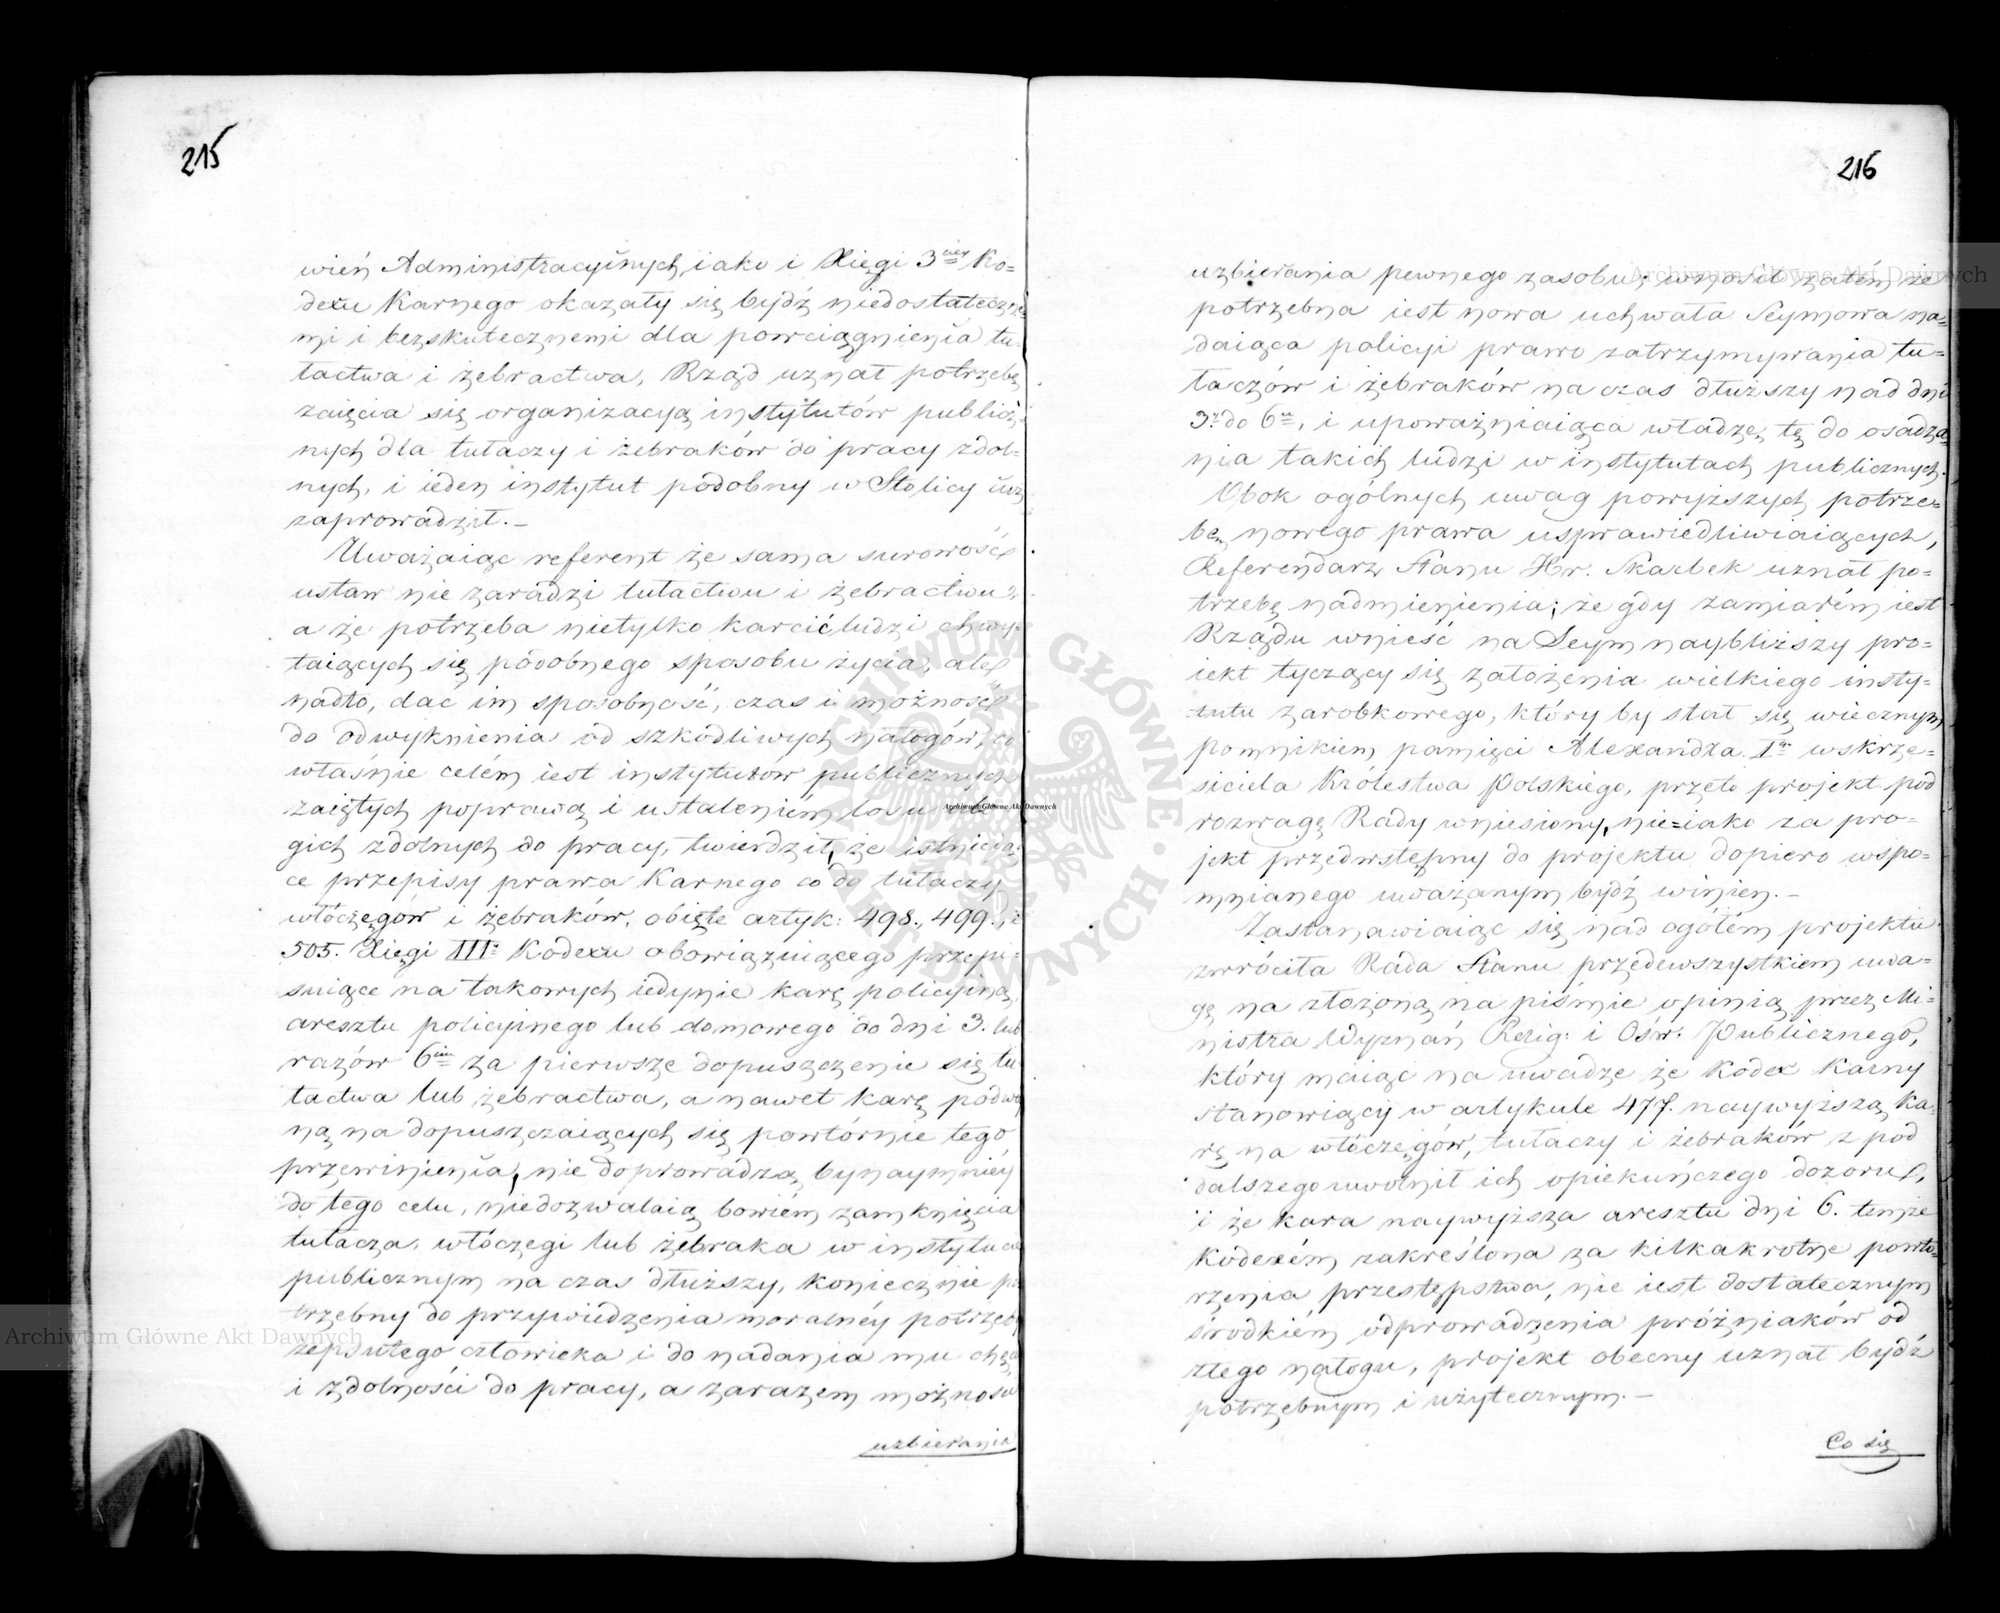 215
wień Administracyinych, iako i Xięgi 3ciey Ko=
dexu Karnego okazały się bydź niedostateczne
mi i bezskutecznemi dla powciągnienia tu=
łactwa i żebractwa, Rząd uznał potrzebę
zaięcia się organizacyą instytutów publicz=
nych dla tułaczy i żebraków do pracy zdol=
nych, i ieden instytut podobny w Stolicy iuż
zaprowadził. —
Uważaiąc referent że sama surowość
ustaw nie zaradzi tułactwu i żebractwu,
a że potrzeba nietylko karcić ludzi chwy=
taiących się podobnego sposobu życia, ale
nadto, dać im sposobność, czas i możność
do odwyknienia od szkodliwych nałogów, co
właśnie celém iest instytutów publicznych
zaiętych poprawą i ustaleniém losu ubo
gich zdolnych do pracy, twierdził, że istnieią=
ce przepisy prawa Karnego co do tułaczy
włóczęgów i żebraków, obięte artyk: 498., 499., i
505. Xięgi IIIy Kodexu obowiązuiącego przepi=
suiące na takowych iedynie karę policyiną,
aresztu policyinego lub domowego do dni 3. lub
razów 6ciu za pierwsze dopuszczenie się tu
łactwa lub żebractwa, a nawet karę podwó
ną na dopuszczaiących się powtórnie tego
przewinienia, nie doprowadzą bynaymniéy
do tego celu, niedozwalaią bowiém zamknięcia
tułacza, włóczęgi lub żebraka w instytucie
publicznym na czas dłuższy, koniecznie po
trzebny do przywiedzenia moralnéy potrzeby
zepsutego człowieka i do nadania mu chęci
i zdolności do pracy, a zarazem możności
uzbierania
216
uzbierania pewnego zasobu; wnosił zatém że
potrzebna iest nowa uchwała Seymowa na=
daiąca policyi prawo zatrzymywania tu=
łaczów i żebraków na czas dłuższy nad dni
3. do 6u, i upoważniaiąca władzę tę do osadza
nia takich ludzi w instytutach publicznych.
Obok ogólnych uwag powyższych potrze=
bę nowego prawa usprawiedliwiaiących,
Referendarz Stanu Hr. Skarbek uznał po=
trzebę nadmienienia; że gdy zamiarém iest
Rządu wnieść na Seym naybliższy pro=
iekt tyczący się założenia wielkiego insty=
tutu zarobkowego, który by stał się wiecznym
pomnikiem pamięci Alexandra Igo wskrze=
siciela Królestwa Polskiego, przeto projekt pod
rozwagę Rady wniesiony, nie=iako za pro=
jekt przedwstępny do projektu dopiero wspo=
mnianego uważanym bydź winien. —
Zastanawiaiąc się nad ogółém projektu
zwróciła Rada Stanu przedewszystkiem uwa=
gę na złożoną na piśmie opinią przez Mi=
nistra Wyznań Relig: i Ośw: Publicznego,
który maiąc na uwadze że Kodex Karny
stanowiący w artykule 477. naywyższą ka=
rę na włóczęgów, tułaczy i żebraków z pod
dalszego uwolnił ich opiekuńczego dozoru,
i że kara naywyższa aresztu dni 6. temże
Kodexém zakreślona za kilkakrotne powtó=
rzenia przestępstwa, nie iest dostatecznym
środkiém odprowadzenia próżniaków od
złego nałogu, projekt obecny uznał bydź
potrzebnym i użytecznym. —
Co się
Archiwum Główne Akt Dawnych
Archiwum Główne Akt Dawnych
Archiwum Główne Akt Dawnych
ARCHIWUM GŁÓWNE AKT DAWNYCH